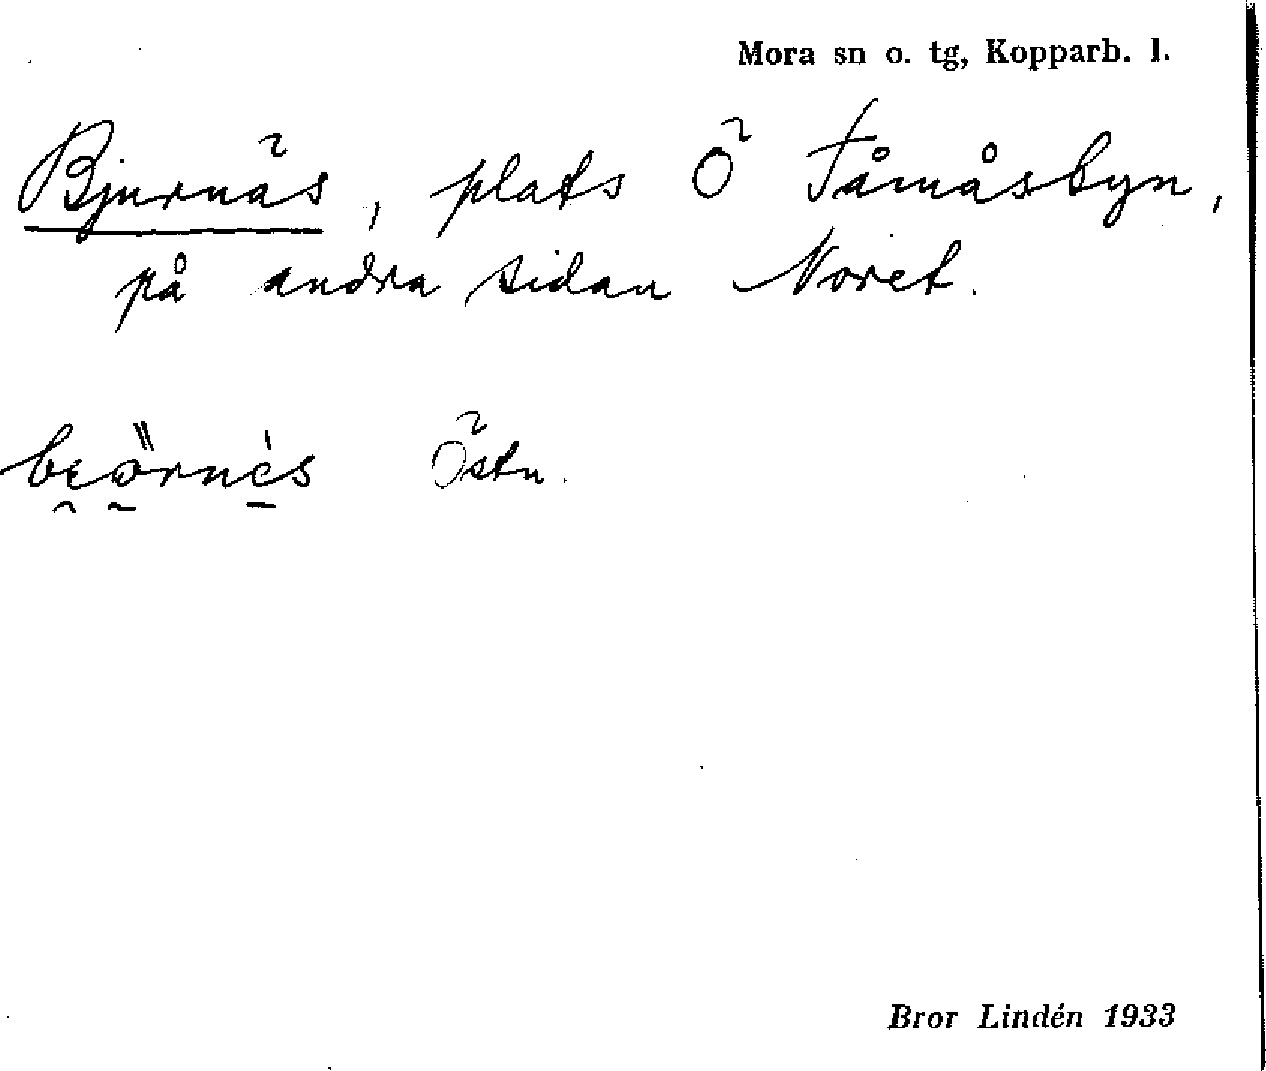 Mora sn o. tg, Kopparb. l.
Bjurnäs, plats Ö Fåmåsbyn,
på andra sidan Noret.
Östn.
Bror Lindén 1933